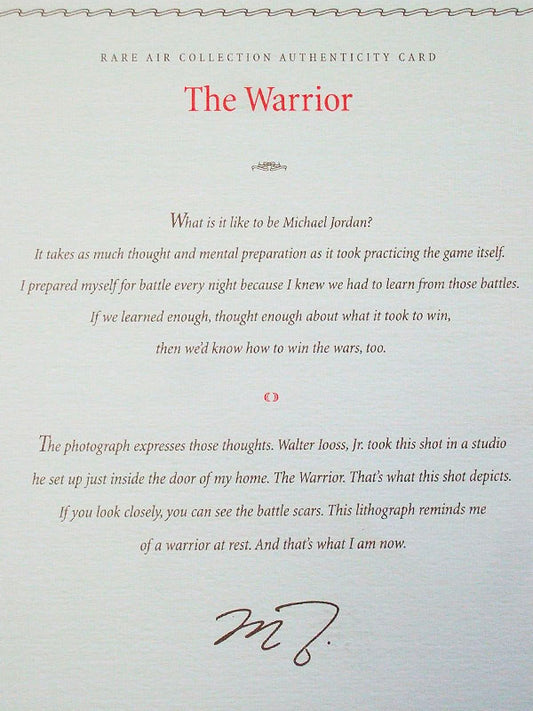 RARE AIR COLLECTION AUTHENTICITY CARD
The Warrior
What is it like to be Michael Jordan?
It takes as much thought and mental preparation as it took practicing the game itself.
I prepared myself for battle every night because I knew we had to learn from those battles.
If we learned enough, thought enough about what it took to win,
then we'd know how to win the wars, too.
The photograph expresses those thoughts. Walter Iooss, Jr. took this shot in a studio
he set up just inside the door of my home. The Warrior. That's what this shot depicts.
If you look closely, you can see the battle scars. This lithograph reminds me
of a warrior at rest. And that's what I am now.
M J.